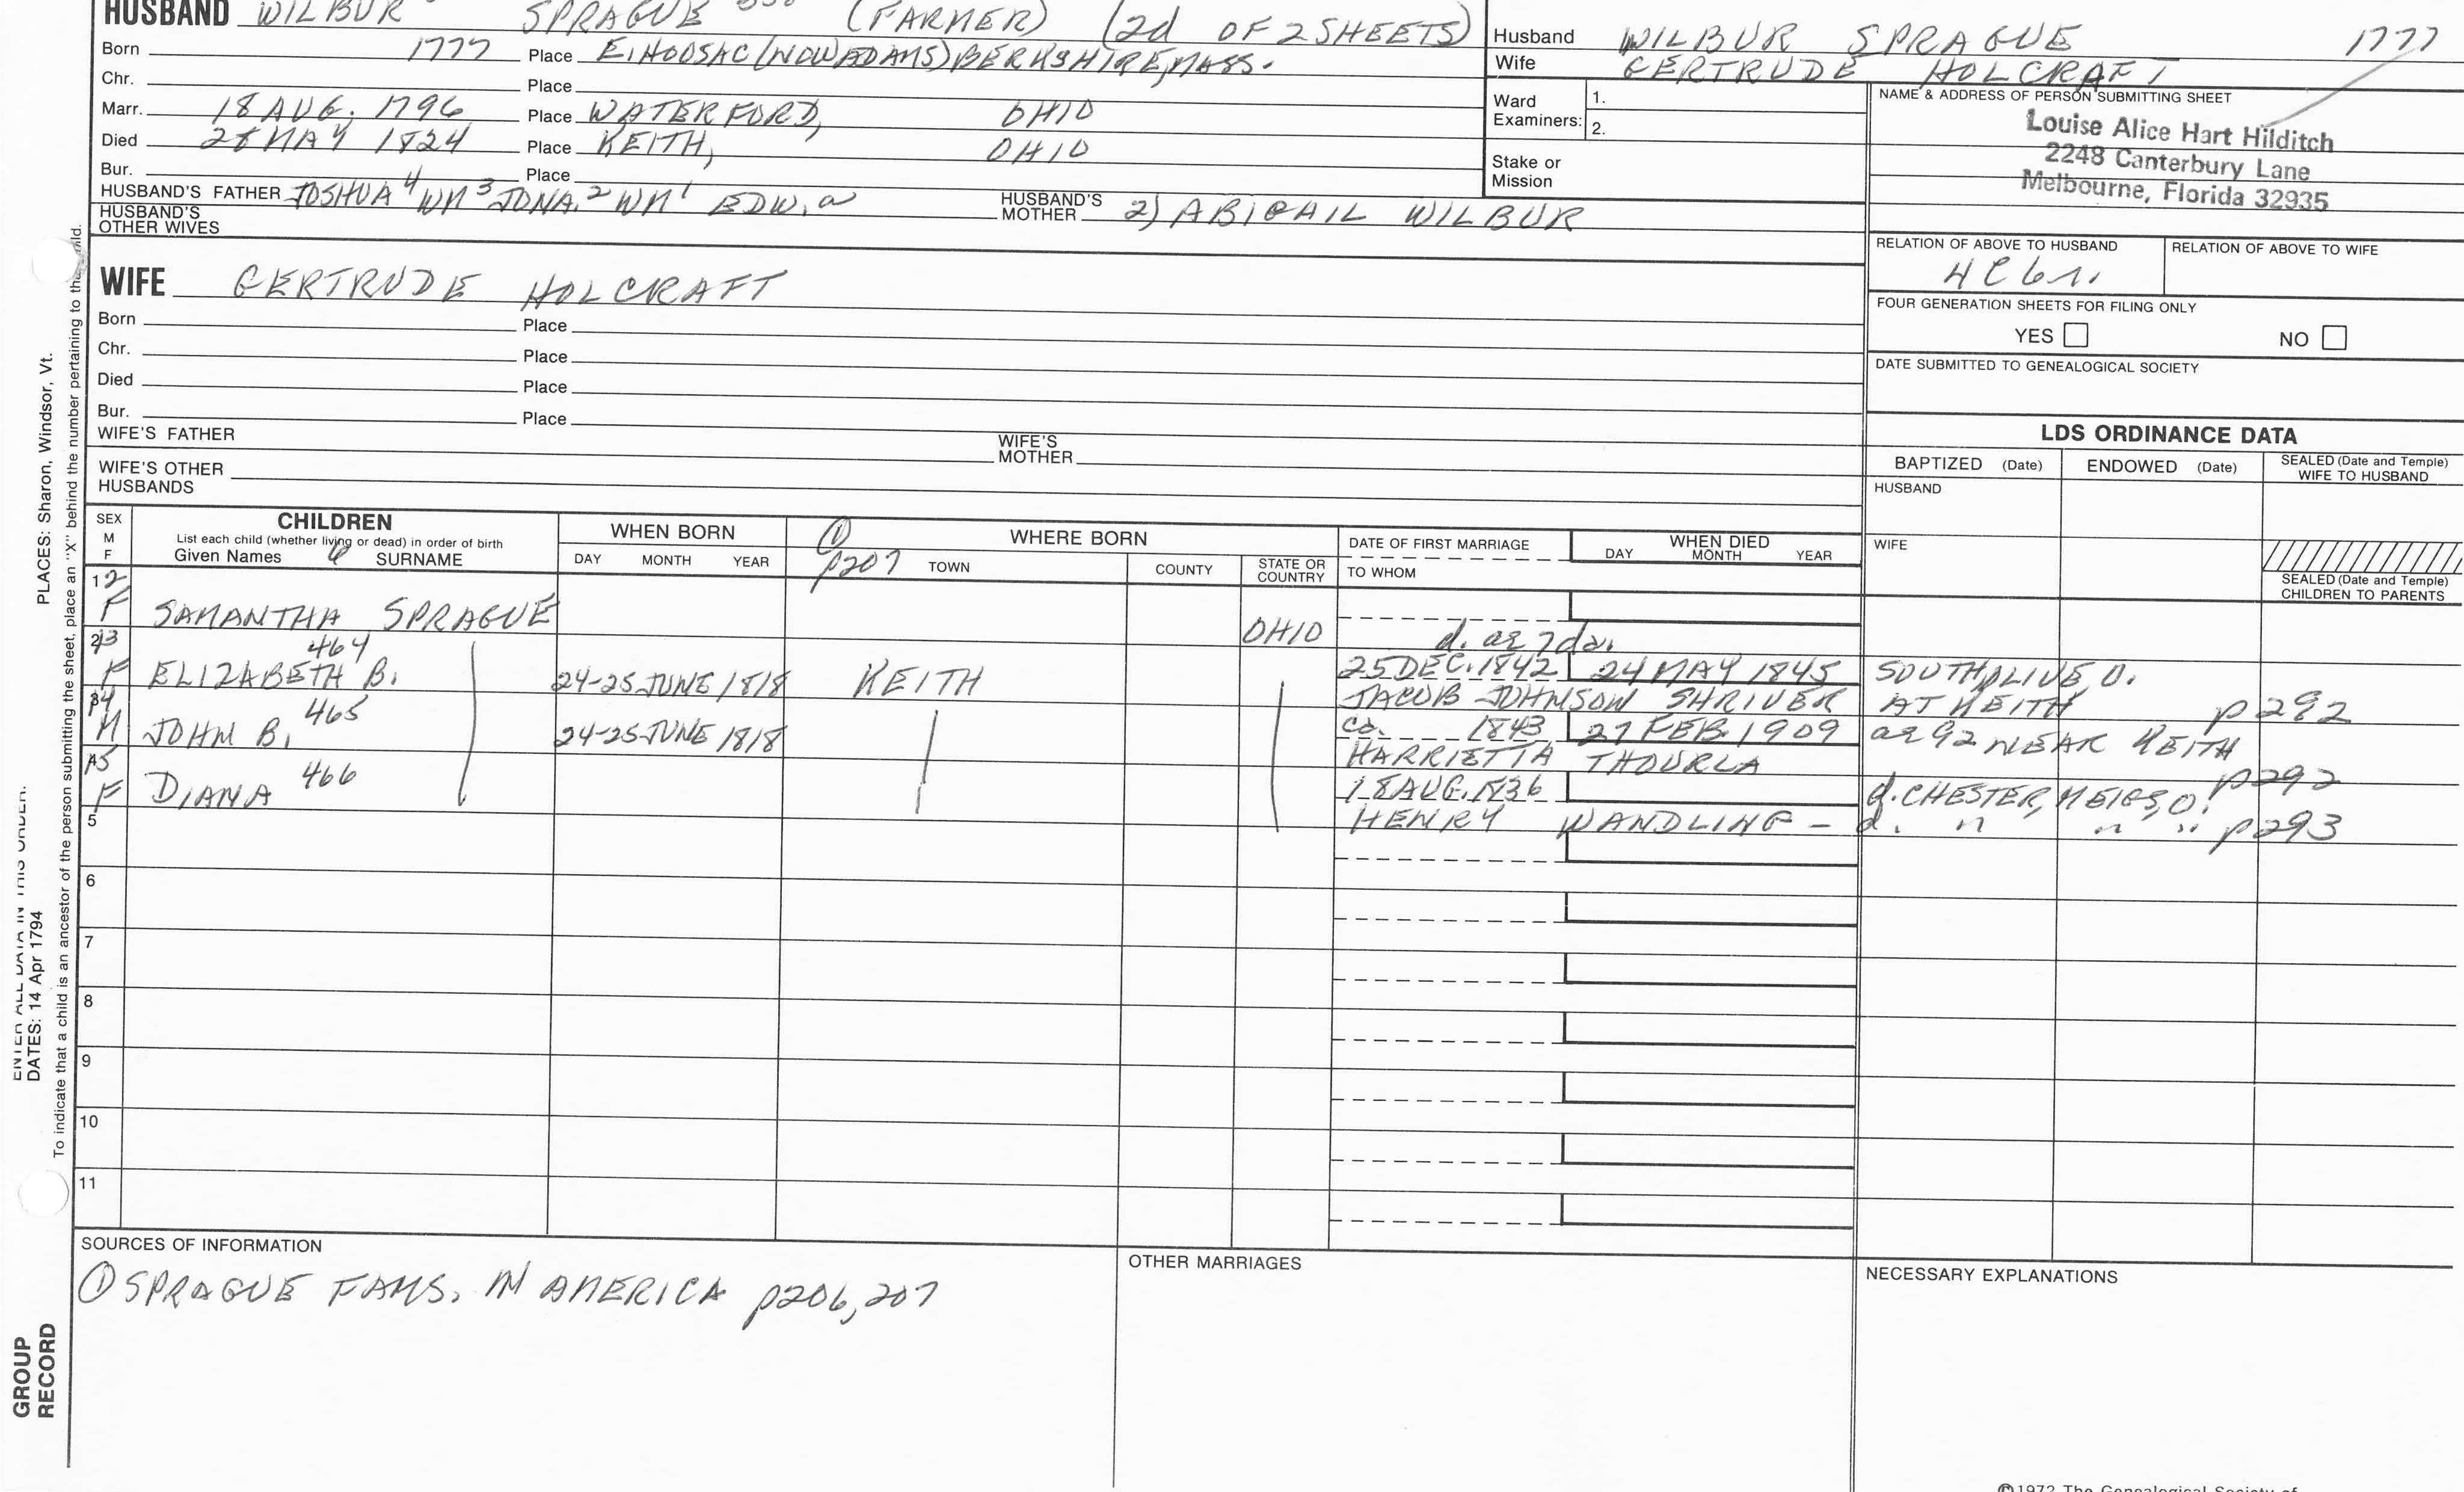 HUSBAND WILBUR SPRAGUE (FARMER) (2d OF 2 SHEETS)
Born 1777 Place E. HOOSAC (NOW ADAMS) BERKSHIRE, MASS.
Chr. Place
Marr. 18 AUG. 1796 Place WATERFORD, OHIO
Died 28 MAY 1824 Place KEITH, OHIO
Bur. Place
HUSBAND'S FATHER JOSHUA 4 WM 3 JONA. 2 WM 1 EDW. a HUSBAND'S MOTHER 2) ABIGAIL WILBUR
HUSBAND'S OTHER WIVES
Husband WILBUR SPRAGUE 1777
Wife GERTRUDE HOLCRAFT
Ward Examiners: 1.
2.
Stake or Mission
NAME & ADDRESS OF PERSON SUBMITTING SHEET
Louise Alice Hart Hilditch
2248 Canterbury Lane
Melbourne, Florida 32935
RELATION OF ABOVE TO HUSBAND RELATION OF ABOVE TO WIFE
4C6r.
FOUR GENERATION SHEETS FOR FILING ONLY
YES NO
DATE SUBMITTED TO GENEALOGICAL SOCIETY
WIFE GERTRUDE HOLCRAFT
Born Place
Chr. Place
Died Place
Bur. Place
WIFE'S FATHER WIFE'S MOTHER
WIFE'S OTHER HUSBANDS
LDS ORDINANCE DATA
BAPTIZED (Date) ENDOWED (Date) SEALED (Date and Temple) WIFE TO HUSBAND
HUSBAND
WIFE
SEALED (Date and Temple) CHILDREN TO PARENTS
SEX M F
CHILDREN
List each child (whether living or dead) in order of birth
Given Names 6 SURNAME
WHEN BORN
DAY MONTH YEAR
① p207 WHERE BORN
TOWN COUNTY STATE OR COUNTRY
DATE OF FIRST MARRIAGE
TO WHOM
WHEN DIED
DAY MONTH YEAR
12 F SAMANTHA SPRAGUE OHIO d. ae 7 da.
23 F ELIZABETH B. 464 24-25 JUNE 1818 KEITH 25 DEC. 1842 24 MAY 1845 SOUTH OLIVE, O.
JACOB JOHNSON SHRIVER AT KEITH p292
34 M JOHN B. 465 24-25 JUNE 1818 ca. 1843 27 FEB. 1909 ae 92 NEAR KEITH
HARRIETTA THOURLA p292
45 F DIANA 466 18 AUG. 1836 d. CHESTER, MEIGS, O.
HENRY WANDLING - d. " " " p293
5
6
7
8
9
10
11
SOURCES OF INFORMATION
① SPRAGUE FAMS. IN AMERICA p206, 207
OTHER MARRIAGES
NECESSARY EXPLANATIONS
©1972 The Genealogical Society of
PLACES: Sharon, Windsor, Vt.
To indicate that a child is an ancestor of the person submitting the sheet, place an "X" behind the number pertaining to that child.
ENTER ALL DATA IN THIS ORDER:
DATES: 14 Apr 1794
GROUP RECORD